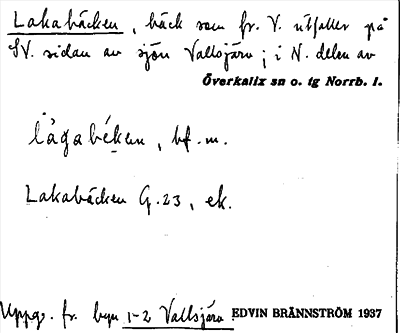 Lakabäcken, bäck som fr. V. utfaller på
SV. sidan av sjön Vallsjärv; i N. delen av
Överkalix sn o. tg Norrb. l.
lågabéken, bf. m.
Lakabäcken G. 23, ek.
Uppg. fr. byn 1-2 Vallsjärv EDVIN BRÄNNSTRÖM 1937